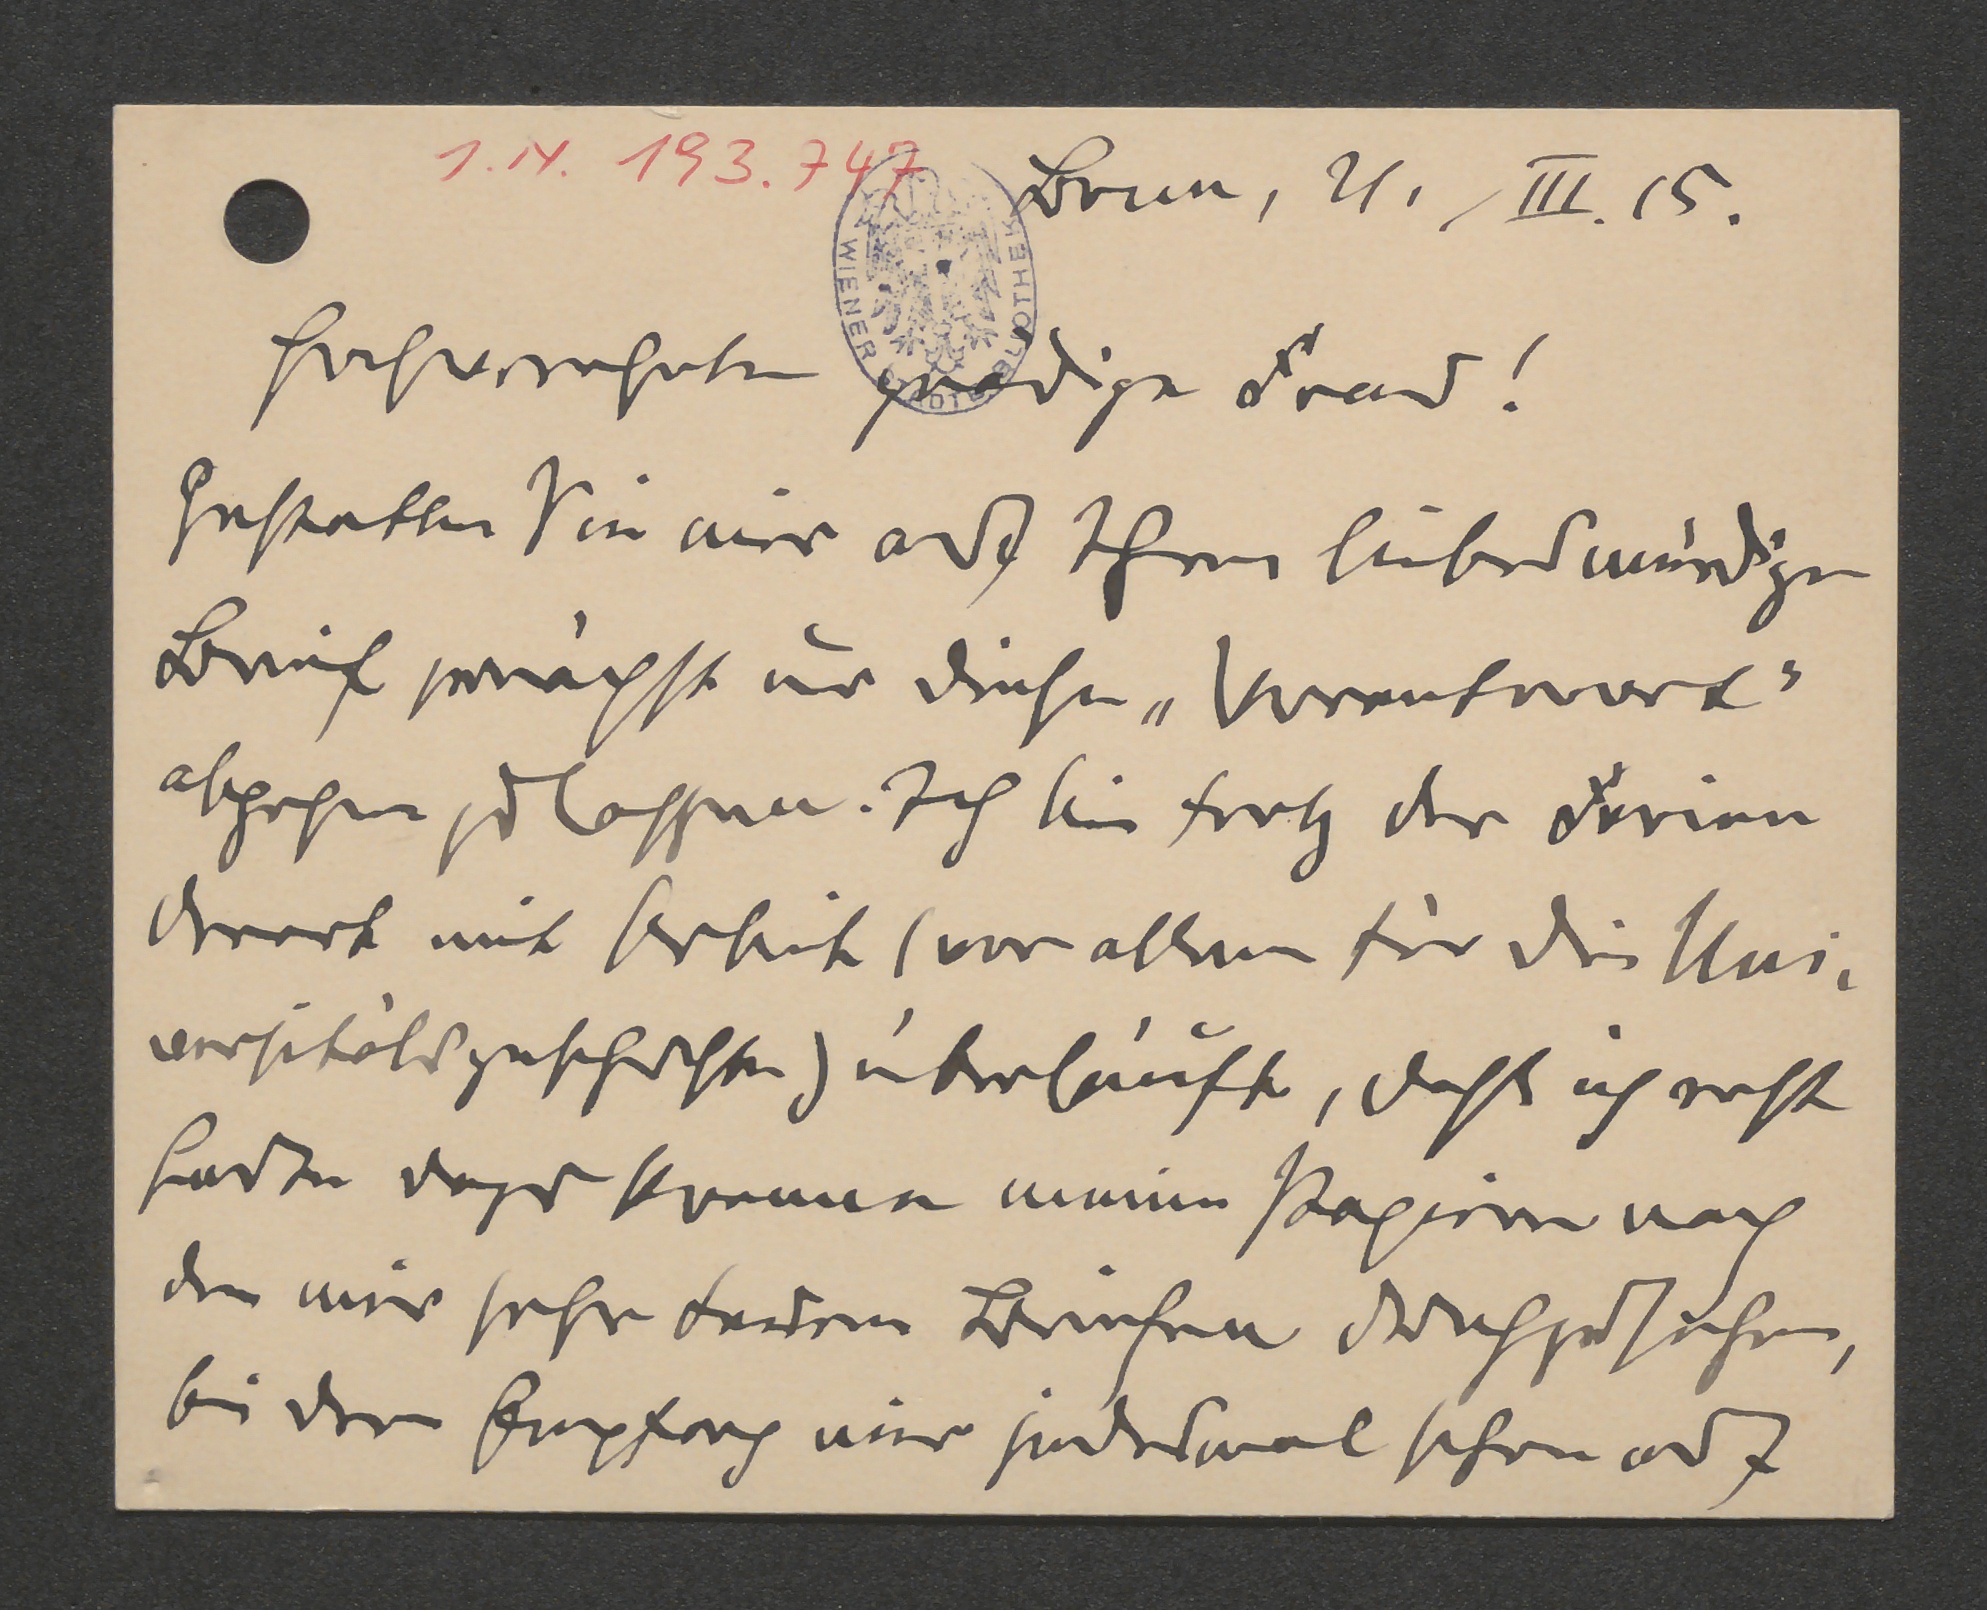 I.N. 193.747
Bern, 21./III. 15.
WIENER STADTBIBLIOTHEK
Hochverehrte gnädige Frau!
Gestatten Sie mir auf Ihren liebenswürdigen
Brief zunächst nur diese „Vorantwort“
abgehen zu lassen. Ich bin trotz der Ferien
derart mit Arbeit (vor allem für die Uni-
versitätsgeschichte) überhäuft, dass ich erst
heute dazu komme meine Papiere nach
den mir sehr teuren Briefen durchzusehen,
bei deren Empfang mir jedesmal schon auf